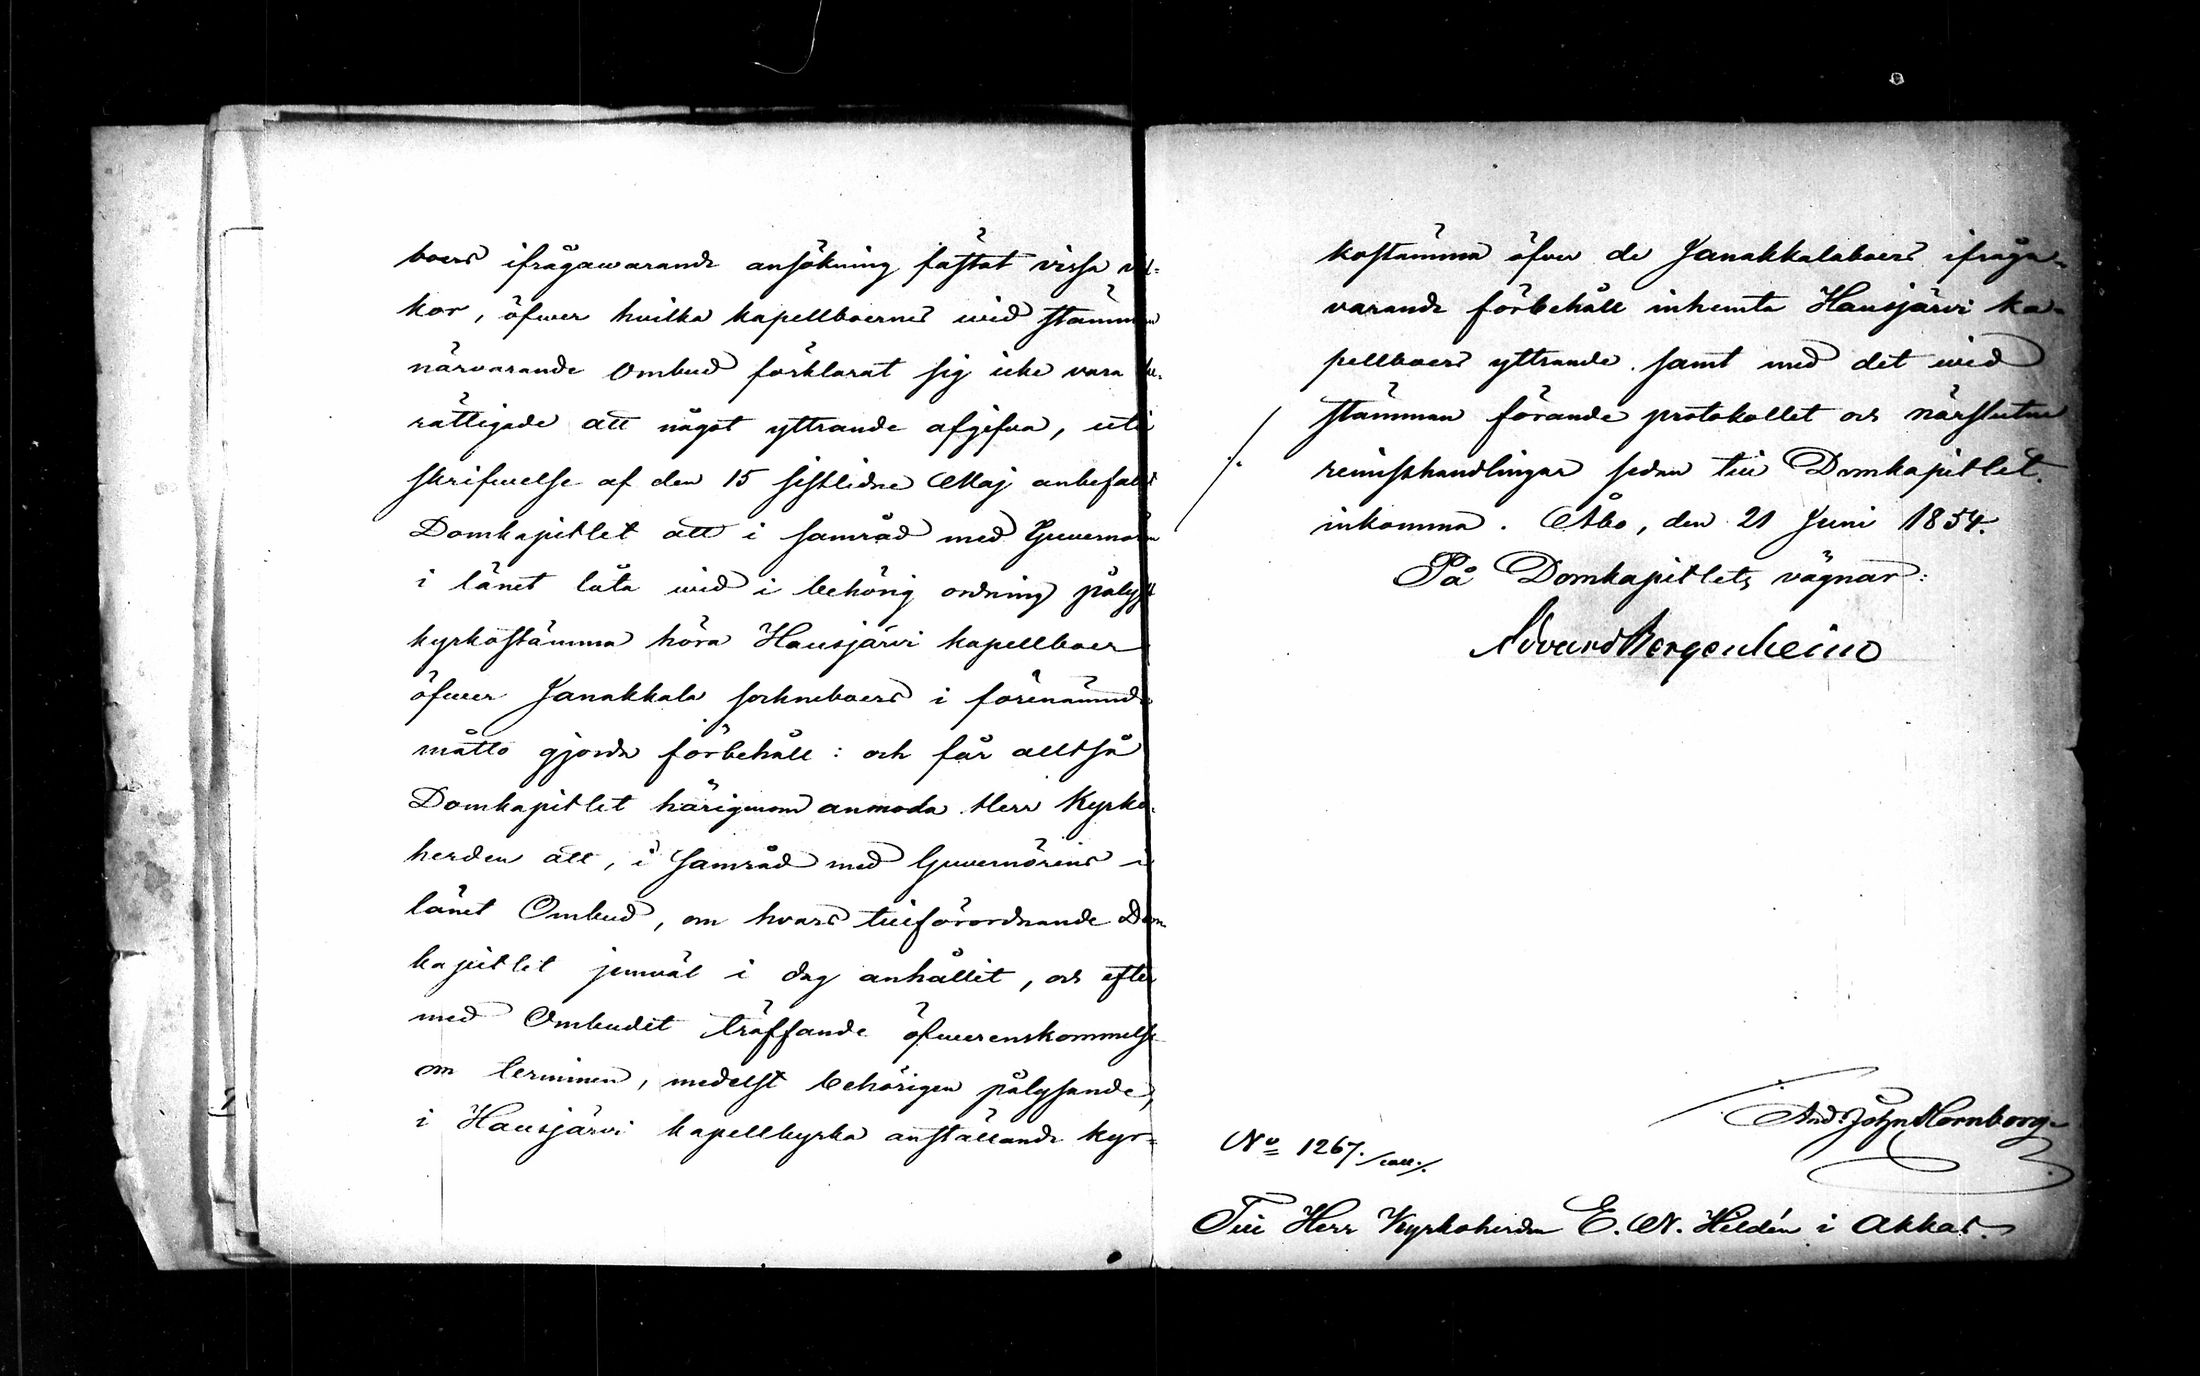 boers ifrågawarande ansökning fästat vissa vil-
kor, öfwer hvilka kapellboernes wid stämman
närvarande Ombud förklarat sig icke vara be-
rättigade att något yttrande afgifva, uti
skrifwelse af den 15 sistlidne Maj anbefallt
Domkapitlet att i samråd med Guvernören
i länet låta wid i behörig ordning pålyst
kyrkostämma höra Hausjärvi kapellboer
öfwer Janakkala sockneboers i förenämnde
måtto gjorda förbehåll: och får alltså
Domkapitlet härigenom anmoda Herr Kyrko-
herden att, i samråd med Guvernörens i
länet Ombud, om hvars tillförordnande Dom-
kapitlet jemväl i dag anhållit, och efter
med Ombudet träffande öfwerenskommelse
om terminen, medelst behörigen pålysande,
i Hausjärvi kapellkyrka anställande kyr-
kostämma öfver de Janakkalaboers ifråga-
varande förbehåll inhemta Hausjärvi ka-
pellboers yttrande samt med det wid
stämman förande protokollet och närslutne
remisshandlingar sedan till Domkapitlet
inkomma. Åbo, den 21 Juni 1854.
På Domkapitlets vägnar:
Edvard Bergenheim
And. John Hornborg
No 1267.
Till Herr Kyrkoherden E. N. Hildén i Akkas.